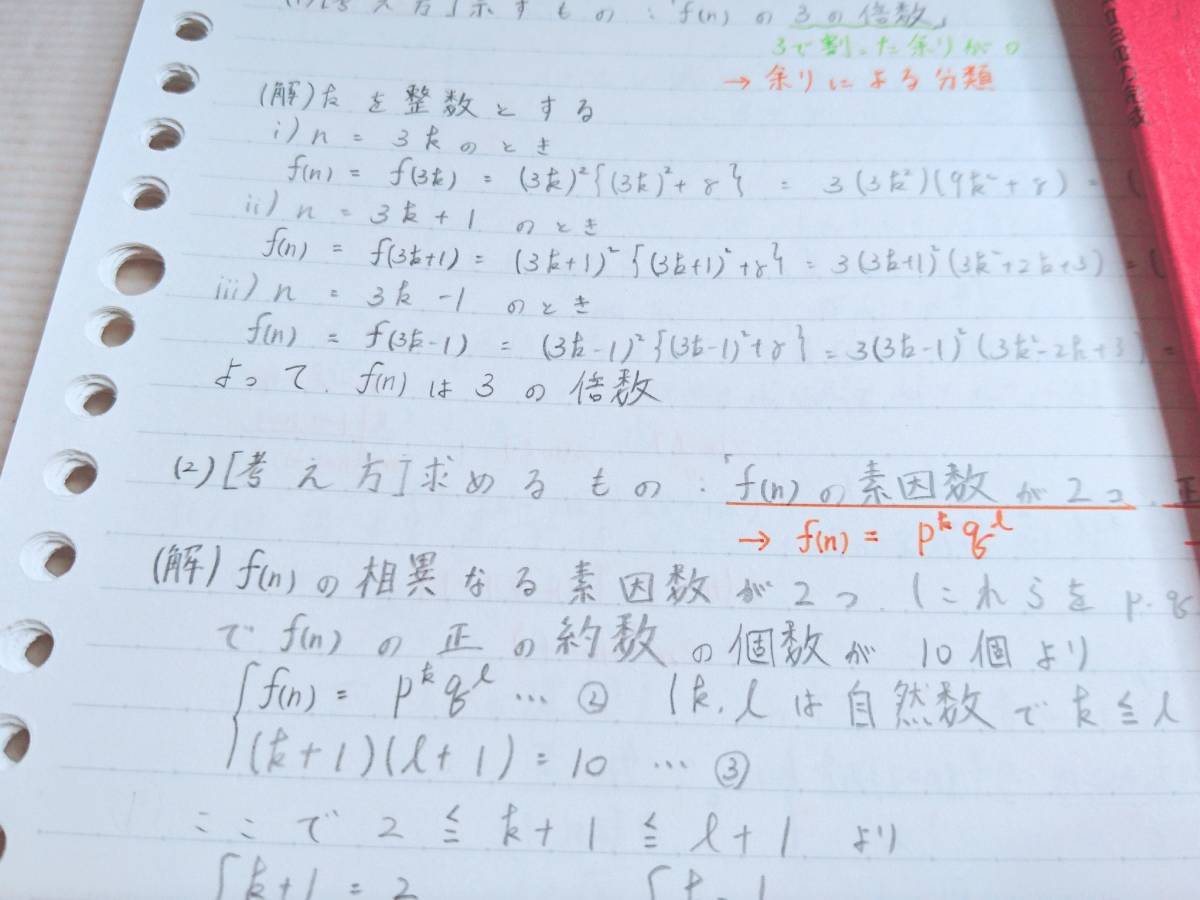 考え方]示すもの:「f(n)の3の倍数」
3で割った余りが0
→ 余りによる分類
(解) kを整数とする
i) n = 3k のとき
f(n) = f(3k) = (3k)²{(3k)²+8} = 3(3k²)(9k²+8) = (
ii) n = 3k+1 のとき
f(n) = f(3k+1) = (3k+1)²{(3k+1)²+8} = 3(3k+1)²(3k²+2k+3) = (
iii) n = 3k-1 のとき
f(n) = f(3k-1) = (3k-1)²{(3k-1)²+8} = 3(3k-1)²(3k²-2k+3) =
よって、f(n)は3の倍数
(2) [考え方]求めるもの:「f(n)の素因数が2つ、正
→ f(n) = p^k q^l
(解) f(n)の相異なる素因数が2つ、(これらをp.q
でf(n)の正の約数の個数が10個より
f(n) = p^k q^l … ② (k, lは自然数でk≦l
(k+1)(l+1) = 10 … ③
ここで 2 ≦ k+1 ≦ l+1 より
k+1 = 2